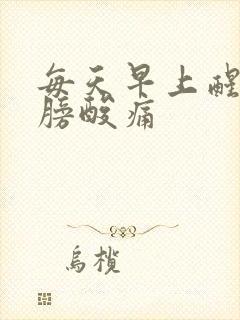 每天早上醒
膀酸痛
乌榄